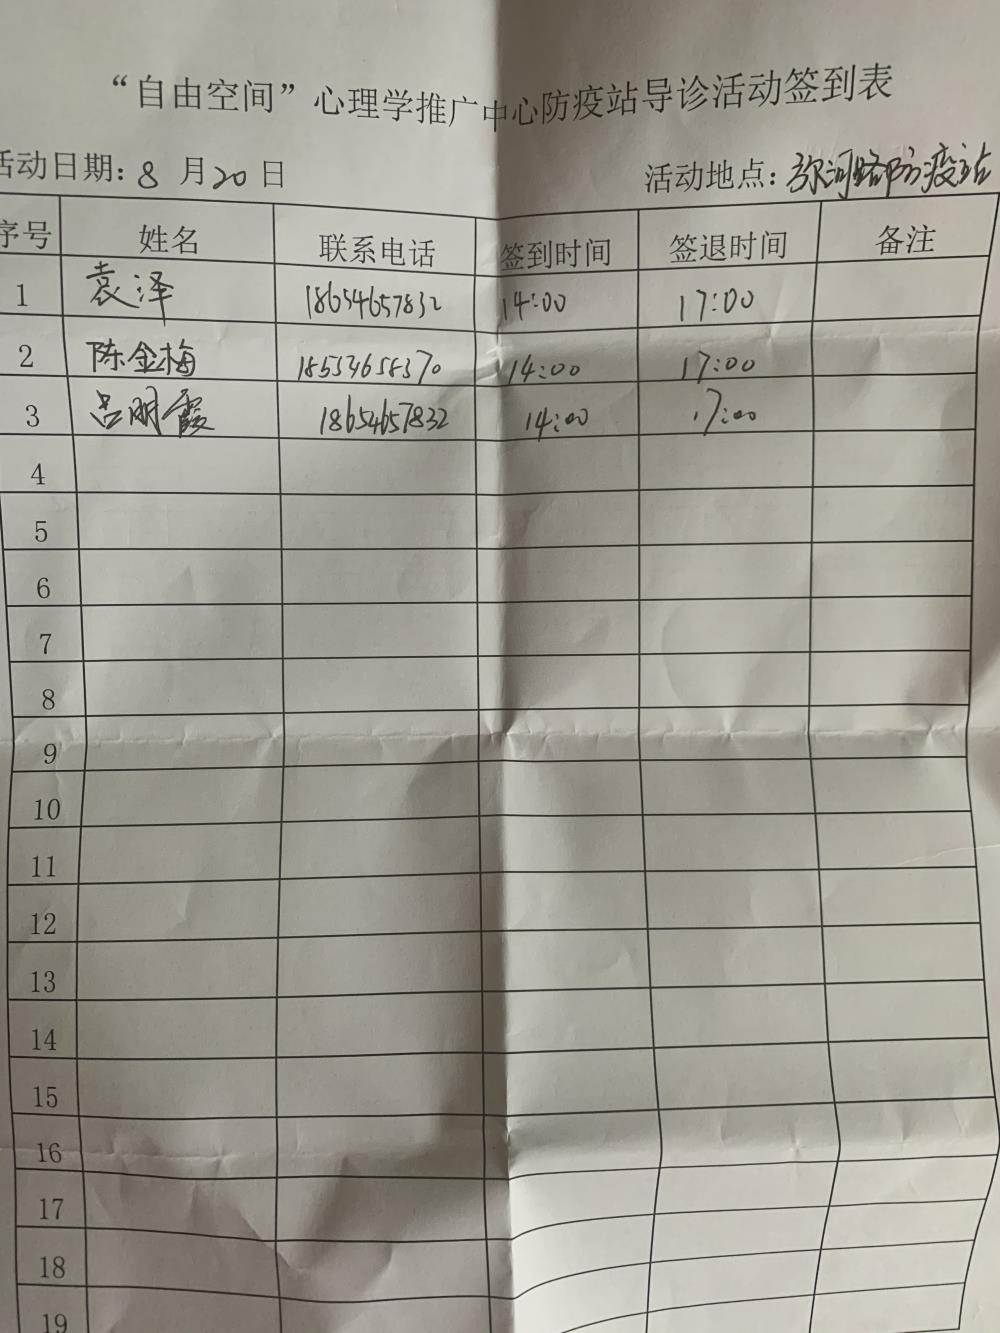 “自由空间”心理学推广中心防疫站导诊活动签到表
活动日期：8 月 20 日 活动地点：弥河路防疫站
序号 姓名 联系电话 签到时间 签退时间 备注
1 袁泽 18654657832 14:00 17:00
2 陈金梅 14:00 17:00
3 吕明霞 18654657832 14:00 17:00
4
5
6
7
8
9
10
11
12
13
14
15
16
17
18
19